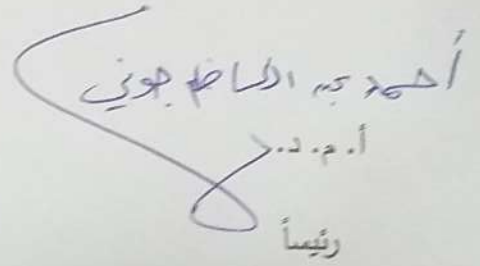 أحمد عبد الكاظم جوني
أ.م.د.
رئيساً